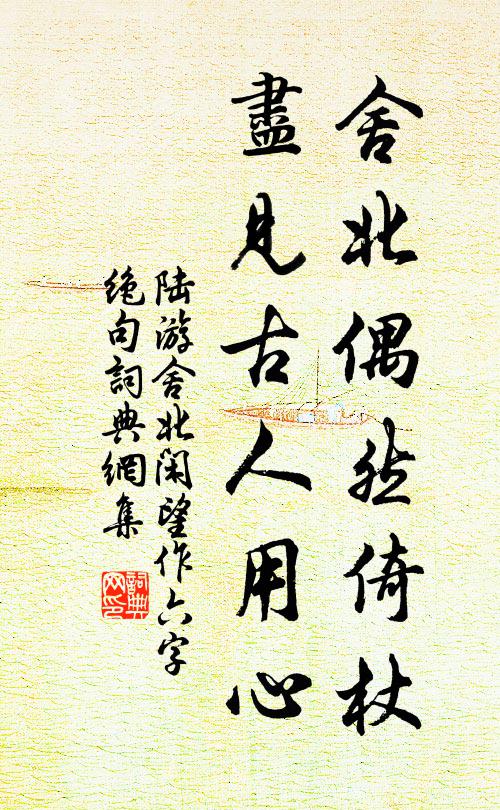 舍北偶然倚杖
盡見古人用心
陆游舍北閑望作六字
绝句詞典網集
詞典
网印